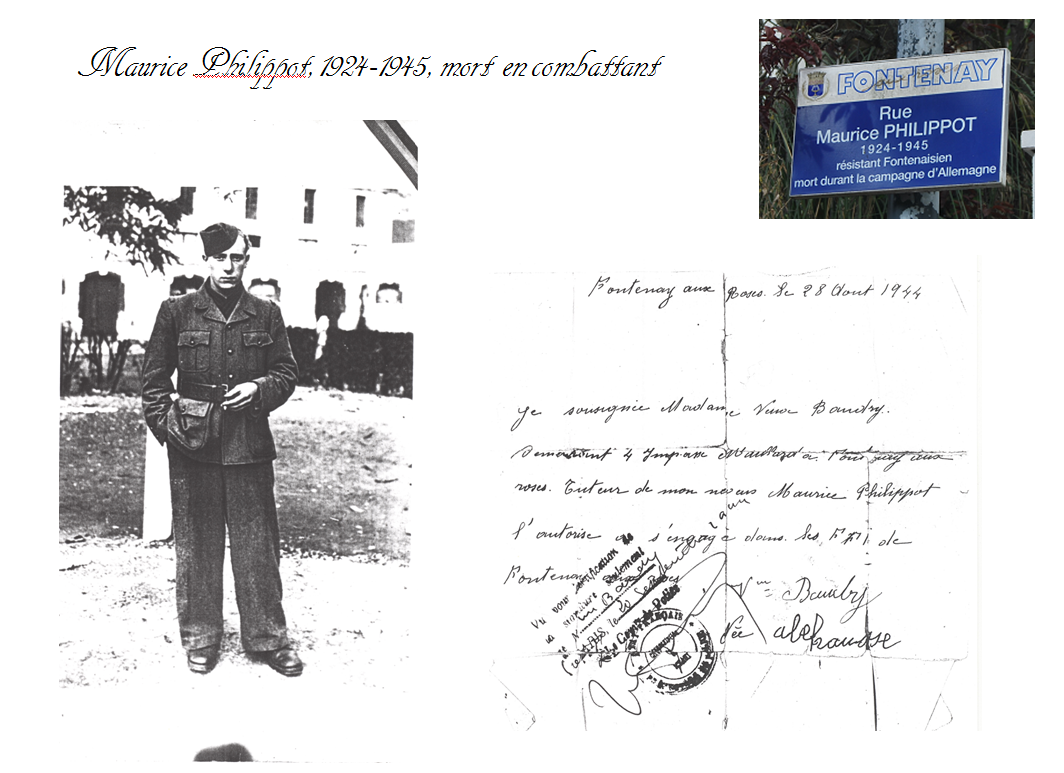 Maurice Philippot, 1924-1945, mort en combattant
FONTENAY
Rue
Maurice PHILIPPOT
1924-1945
résistant Fontenaisien
mort durant la campagne d'Allemagne
Fontenay aux Roses. le 28 Aout 1944
Je sousignée Madame Veuve Baudry.
Demeurant 4 Impasse à Fontenay aux
roses. Tuteur de mon neveus Maurice Philippot
l'autorise a s'engagé dans les FFI de
Fontenay
Vu pour
la signature seulement
de
le 20
Le Comre de Police
Vve Baudry
Née
FRANÇAIS